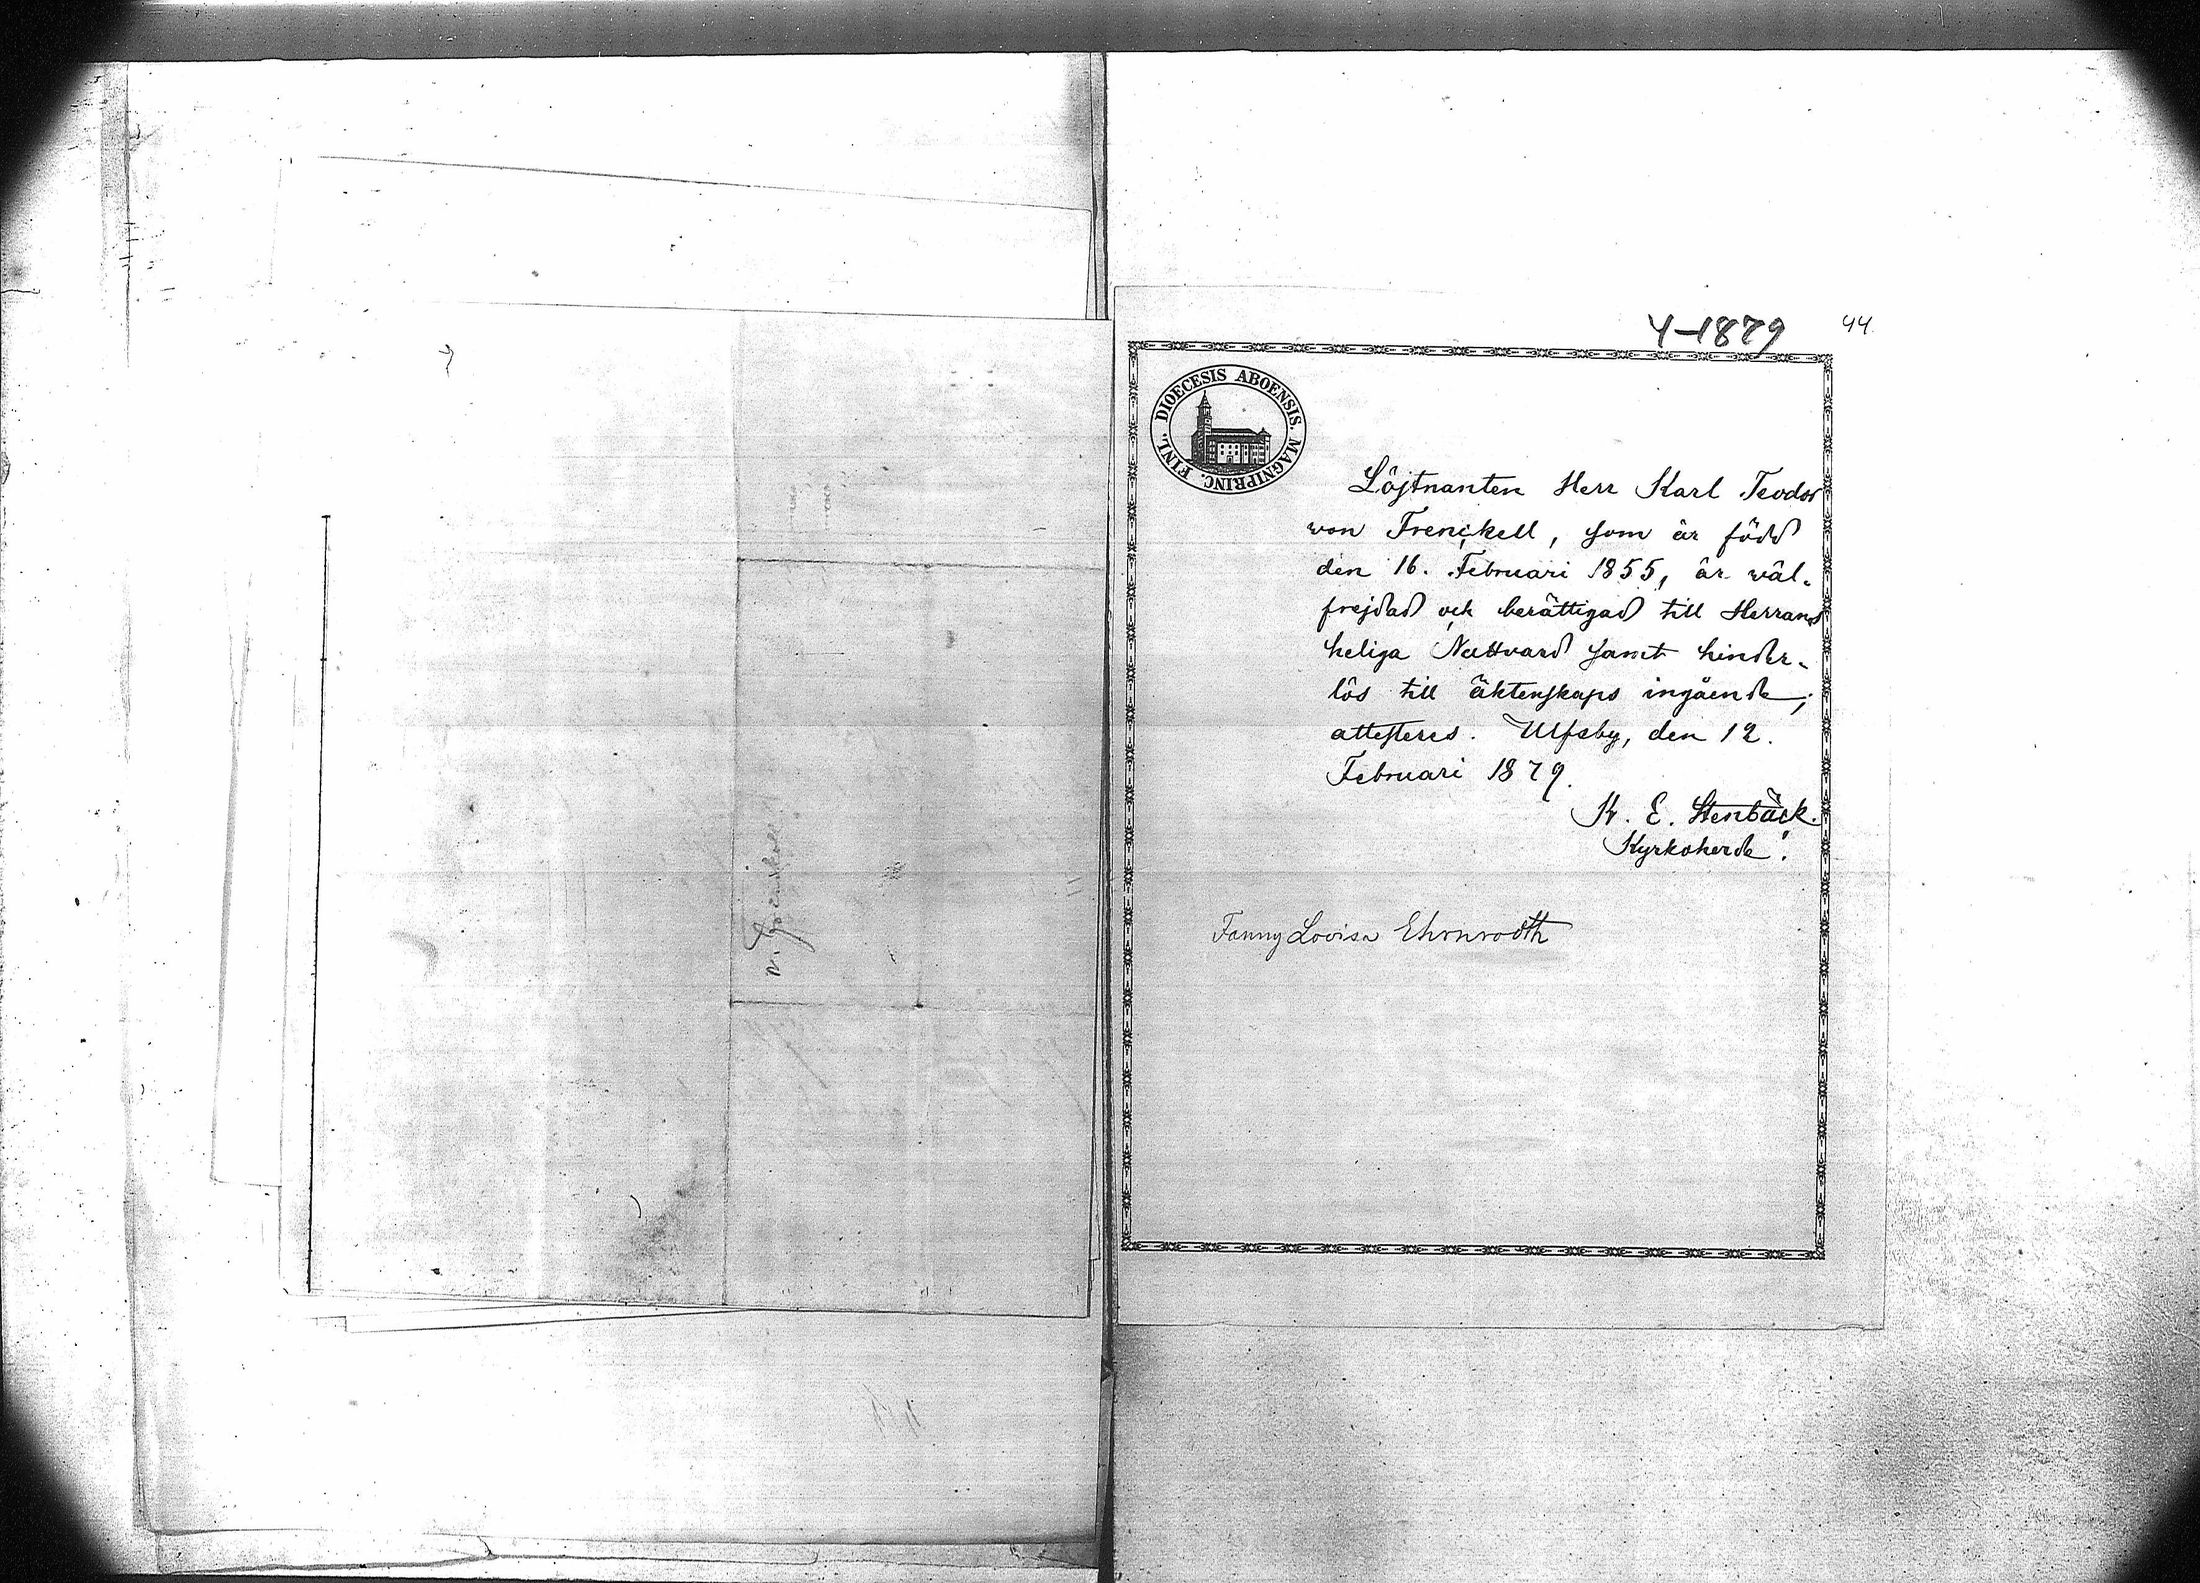 v. Frenckell
4-1879 44
DIOECESIS ABOENSIS. MAGNIPRINC. FINL.
Löjtnanten Herr Karl Teodor
von Frenckell, som är född
den 16. Februari 1855, är väl-
frejdad och berättigad till Herrans
heliga Nattvard samt hinder-
lös till äktenskaps ingående,
attesteres. Ulfsby, den 12.
Februari 1879.
K. E. Stenbäck.
Kyrkoherde.
Fanny Lovisa Ehrnrooth